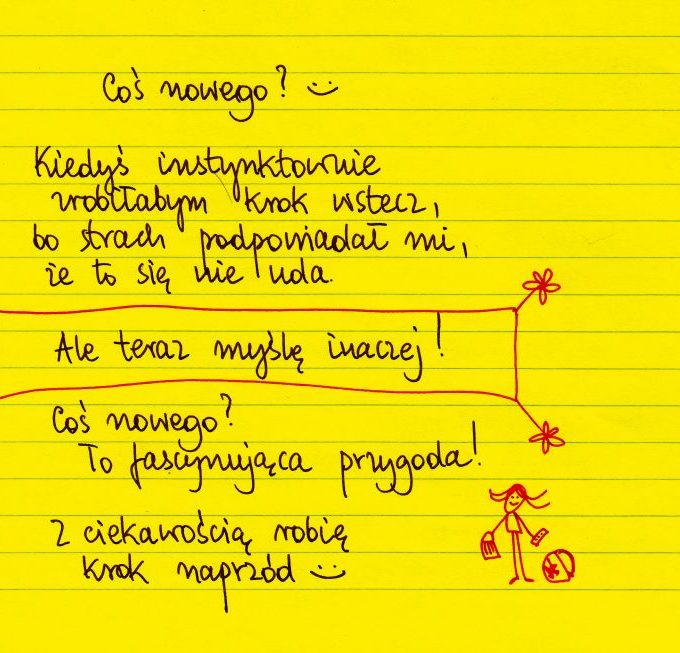 Coś nowego? :)
Kiedyś instynktownie
zrobiłabym krok wstecz,
bo strach podpowiadał mi,
że to się nie uda.
Ale teraz myślę inaczej!
Coś nowego?
To fascynująca przygoda!
Z ciekawością robię
krok naprzód :)